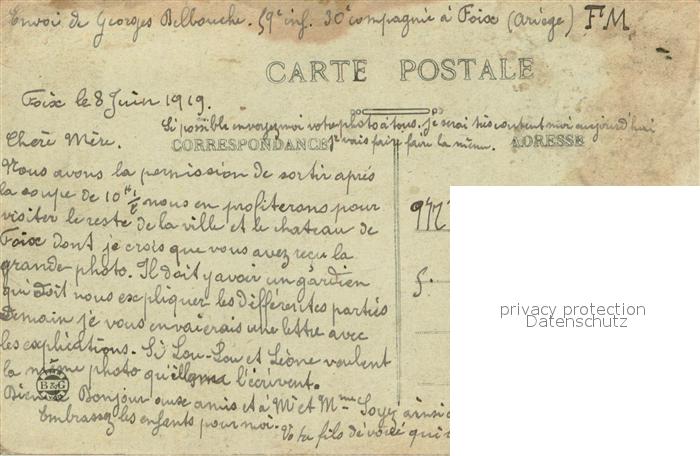 Envoi de Georges Belbouche. 59e inf. 30e compagnie à Foix (Ariège) FM
CARTE POSTALE
Foix le 8 Juin 1919.
Si possible envoyez moi votre photo à tous. je serai très content moi aujourd'hui
je vais faire faire la mienne.
Chère Mère.
CORRESPONDANCE
ADRESSE
Nous avons la permission de sortir après
la soupe de 10 H 1/2 nous en profiterons pour
visiter le reste de la ville et le chateau de
Foix dont je crois que vous avez reçu la
grande photo. Il doit y avoir un gardien
qui doit nous expliquer les différentes parties
Demain je vous envaierais une lettre avec
les explications. Si Lou-Lou et Léone veulent
la même photo qu'ils l'écrivent.
B&G
Bonjour aux amis et à Mr et Mme Soyez ainsi
Embrassez les enfants pour moi.
Votre fils dévoué qui
privacy protection
Datenschutz